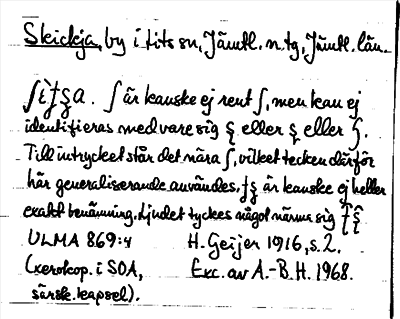 Skickja, by i Lits sn, Jämtl. n. tg, Jämtl. län.
ʃ är kanske ej rent ʃ, men kan ej
identifieras med vare sig eller eller
Till intrycket står det nära ʃ, vilket tecken därför
här generaliserande användes. är kanske ej heller
exakt benämning. Ljudet tyckes något närma sig
ULMA 869:4 H. Geijer 1916, s. 2.
(xerokop. i SOA, Exc. av A.-B. H. 1968.
särsk. kapsel).